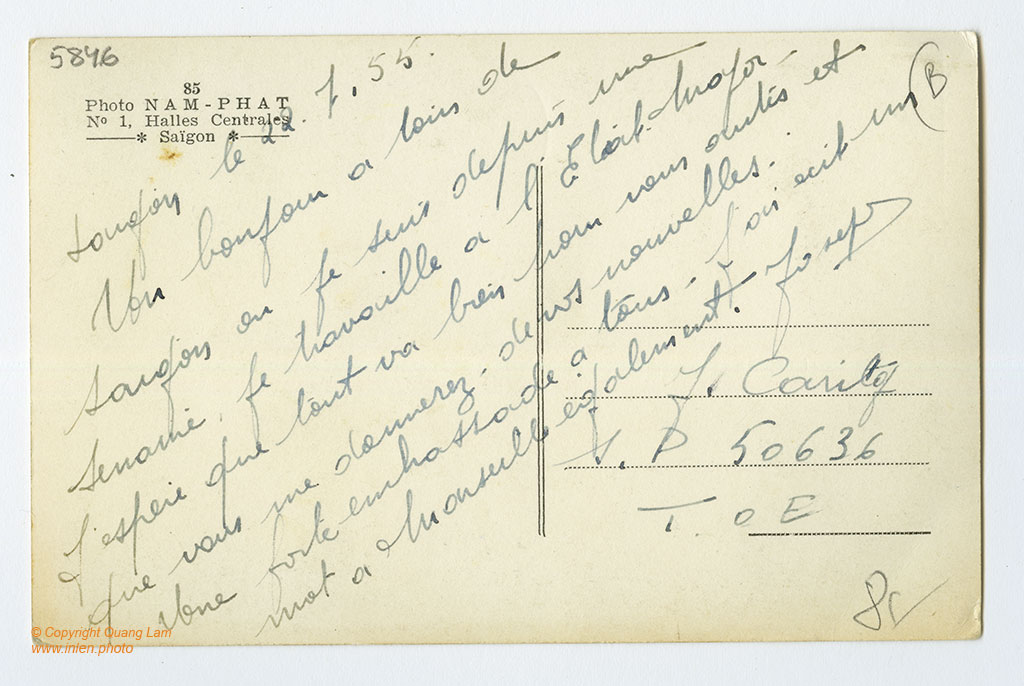 5846
85
Photo NAM-PHAT
Nº 1, Halles Centrales
* Saïgon *
Saigon le 22.7.55.
Un bonjour a tous de
Saigon ou je suis depuis une
semaine. Je travaille a l'Etat-Major.
J'espere que tout va bien pour vous autres et
que vous me donnerez de vos nouvelles.
Une forte embrassade a tous. J'ai ecrit un
mot a Marseille egalement. Josep
(B
J.
S.P 50636
T.O E
© Copyright Quang Lam
www.inlen.photo